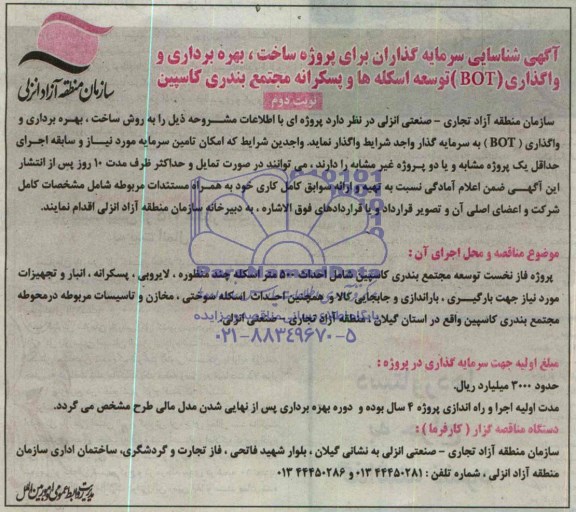 سازمان منطقه آزاد انزلی
آگهی شناسایی سرمایه گذاران برای پروژه ساخت ، بهره برداری و
واگذاری (BOT) توسعه اسکله ها و پسکرانه مجتمع بندری کاسپین
نوبت دوم
سازمان منطقه آزاد تجاری - صنعتی انزلی در نظر دارد پروژه ای با اطلاعات مشروحه ذیل را به روش ساخت ، بهره برداری و
واگذاری ( BOT ) به سرمایه گذار واجد شرایط واگذار نماید. واجدین شرایط که امکان تامین سرمایه مورد نیاز و سابقه اجرای
حداقل یک پروژه مشابه و یا دو پروژه غیر مشابه را دارند ، می توانند در صورت تمایل و حداکثر ظرف مدت ۱۰ روز پس از انتشار
این آگهی ضمن اعلام آمادگی نسبت به تهیه و ارائه سوابق کامل کاری خود به همراه مستندات مربوطه شامل مشخصات کامل
شرکت و اعضای اصلی آن و تصویر قرارداد و یا قراردادهای فوق الاشاره ، به دبیرخانه سازمان منطقه آزاد انزلی اقدام نمایند.
موضوع مناقصه و محل اجرای آن :
پروژه فاز نخست توسعه مجتمع بندری کاسپین شامل احداث ۵۰۰ متر اسکله چند منظوره ، لایروبی ، پسکرانه ، انبار و تجهیزات
مورد نیاز جهت بارگیری ، باراندازی و جابجایی کالا و همچنین احداث اسکله سوختی ، مخازن و تاسیسات مربوطه درمحوطه
مجتمع بندری کاسپین واقع در استان گیلان ، منطقه آزاد تجاری - صنعتی انزلی.
۰۲۱-۸۸۳۴۹۶۷۰-۵
مبلغ اولیه جهت سرمایه گذاری در پروژه :
حدود ۳۰۰۰ میلیارد ریال.
مدت اولیه اجرا و راه اندازی پروژه ۴ سال بوده و دوره بهره برداری پس از نهایی شدن مدل مالی طرح مشخص می گردد.
دستگاه مناقصه گزار ( کارفرما ) :
سازمان منطقه آزاد تجاری - صنعتی انزلی به نشانی گیلان ، بلوار شهید فاتحی ، فاز تجارت و گردشگری، ساختمان اداری سازمان
منطقه آزاد انزلی ، شماره تلفن : ۴۴۴۵۰۲۸۱ ۰۱۳ و ۴۴۴۵۰۲۸۶ ۰۱۳
مدیریت روابط عمومی و امور بین الملل